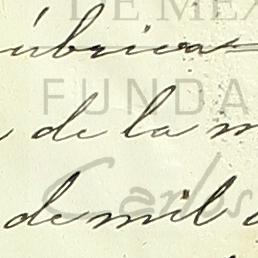 DE MÉX
úbrica
FUNDA
de la m
Carlos
de mil